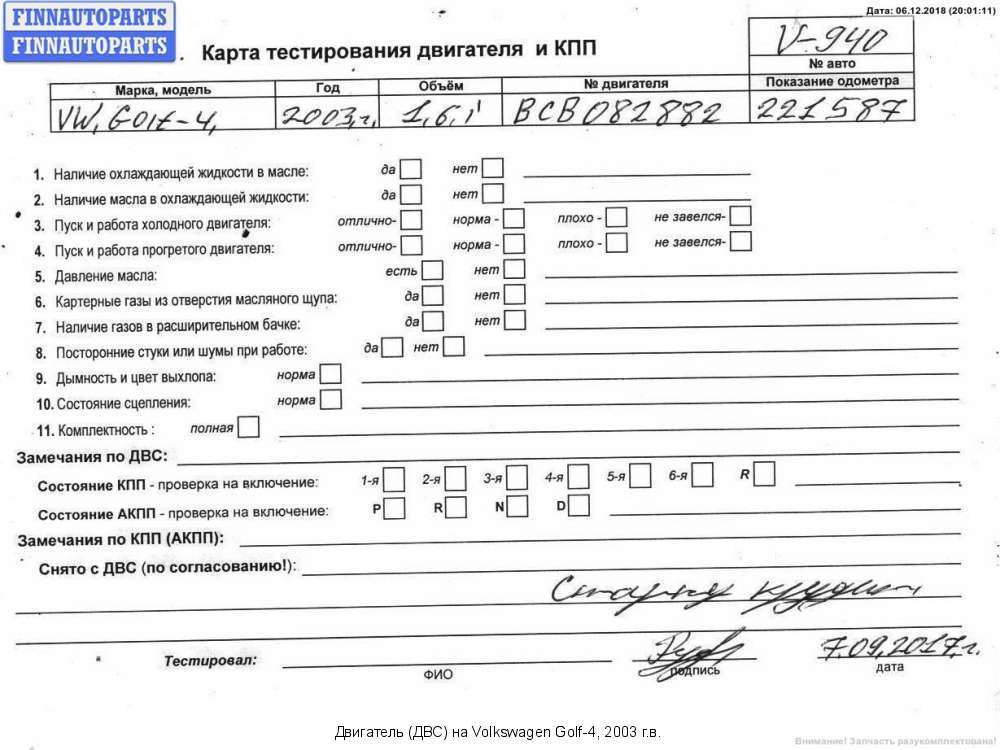 FINNAUTOPARTS
FINNAUTOPARTS
Дата: 06.12.2018 (20:01:11)
Карта тестирования двигателя и КПП
V-940
№ авто
Марка, модель Год Объём № двигателя Показание одометра
VW, Golf-4, 2003,г, 1,6,i BCB082882 221587
1. Наличие охлаждающей жидкости в масле: да нет
2. Наличие масла в охлаждающей жидкости: да нет
3. Пуск и работа холодного двигателя: отлично- норма - плохо - не завелся-
4. Пуск и работа прогретого двигателя: отлично- норма - плохо - не завелся-
5. Давление масла: есть нет
6. Картерные газы из отверстия масляного щупа: да нет
7. Наличие газов в расширительном бачке: да нет
8. Посторонние стуки или шумы при работе: да нет
9. Дымность и цвет выхлопа: норма
10. Состояние сцепления: норма
11. Комплектность : полная
Замечания по ДВС:
Состояние КПП - проверка на включение: 1-я 2-я 3-я 4-я 5-я 6-я R
Состояние АКПП - проверка на включение: P R N D
Замечания по КПП (АКПП):
Снято с ДВС (по согласованию!):
Тестировал: 7.09,2017,г.
ФИО подпись дата
Двигатель (ДВС) на Volkswagen Golf-4, 2003 г.в.
Внимание! Запчасть разукомплектована!